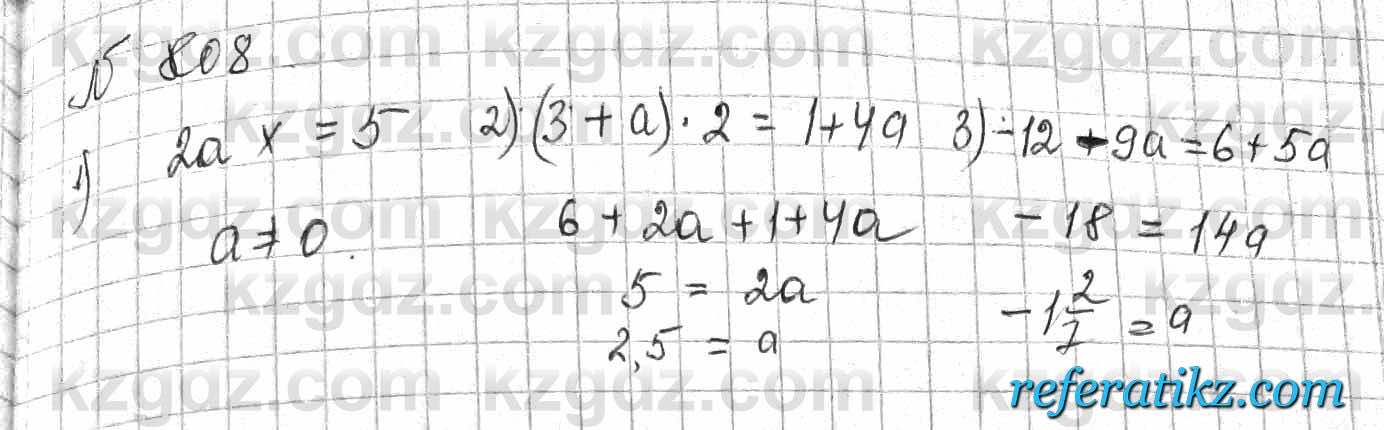 № 808
1) 2a x = 5
a ≠ 0.
2) (3 + a) · 2 = 1 + 4a
6 + 2a + 1 + 4a
5 = 2a
2,5 = a
3) -12 - 9a = 6 + 5a
-18 = 14a
-1 2/7 = a
kzgdz.com kzgdz.com kzgdz.com
kzgdz.com kzgdz.com kzgdz.com
kzgdz.com kzgdz.com kzgdz.com
kzgdz.com kzgdz.com kzgdz.com
kzgdz.com kzgdz.com kzgdz.com
referatikz.com